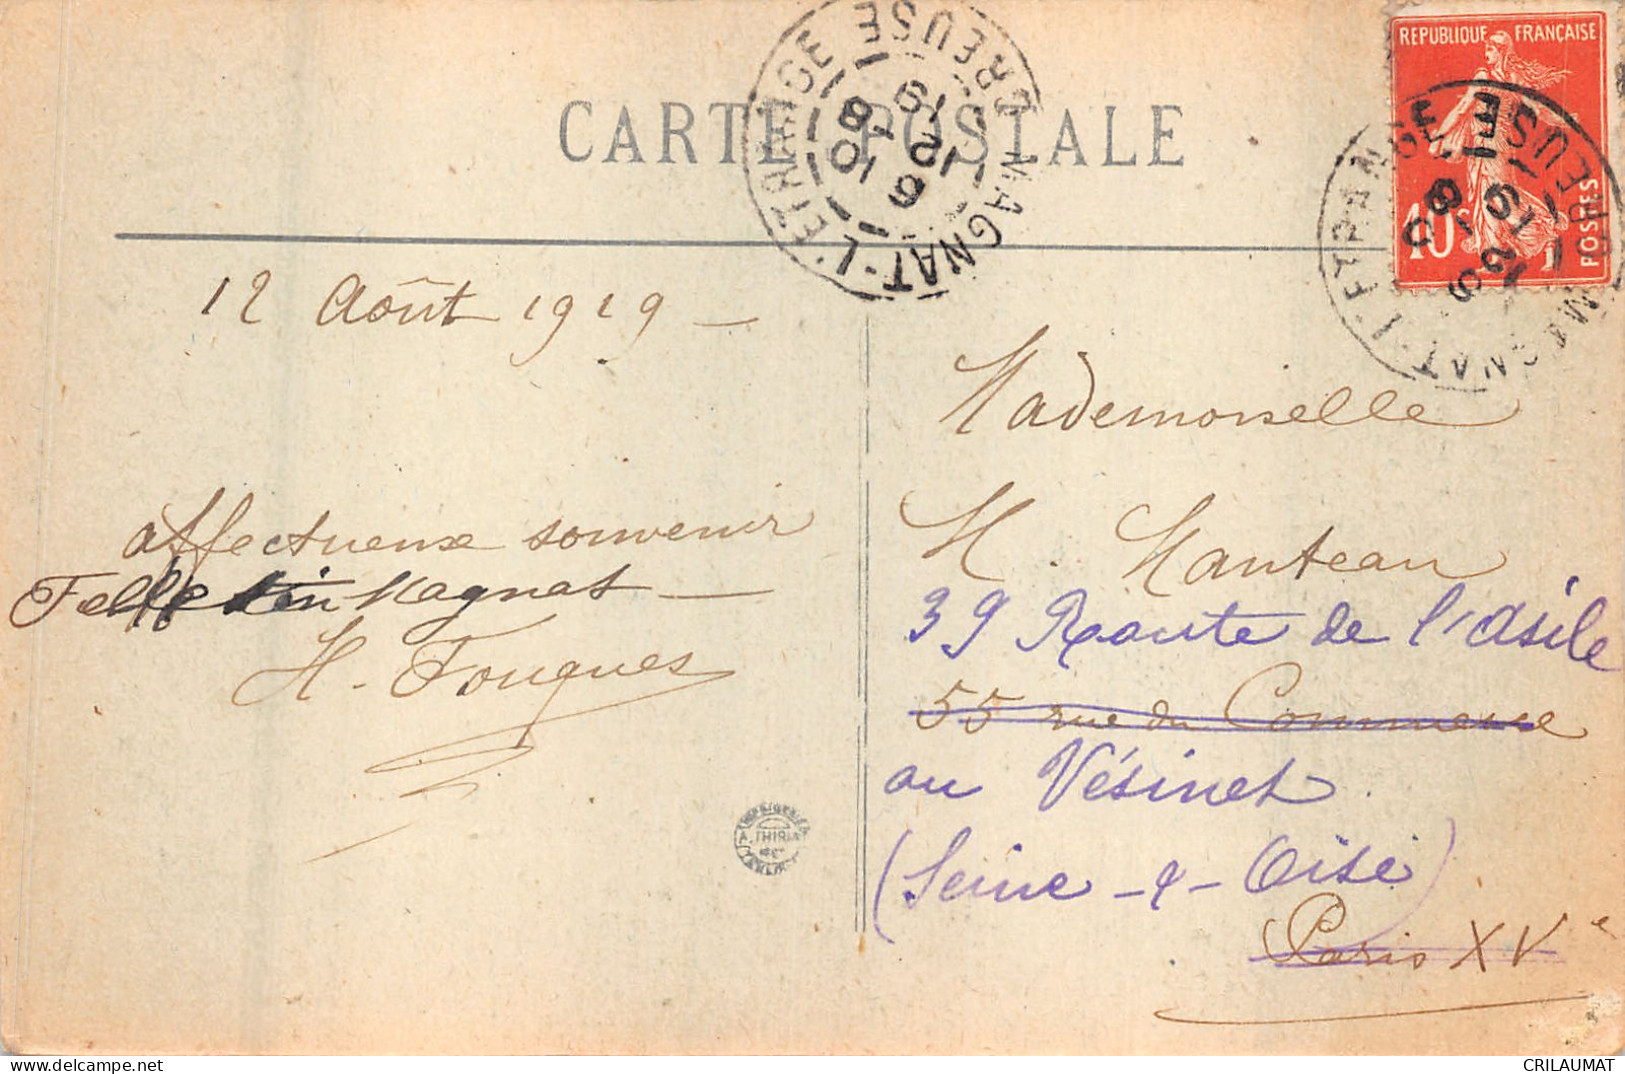 CARTE POSTALE
MAGNAT-L'ETRANGE CREUSE
10
12-8
19
REPUBLIQUE FRANÇAISE
10c
POSTES
MAGNAT-L'ETRANGE CREUSE
12-8
19
12 Août 1919 -
affectueux souvenir
Magnat -
H. Fouques
IMPRIMERIE
A. THIRIAT
Mademoiselle
H. Manteau
39 Route de l'asile
55 rue du Commerce
au Vésinet
(Seine-&-Oise)
Paris XVe
delcampe.net
CRILAUMAT